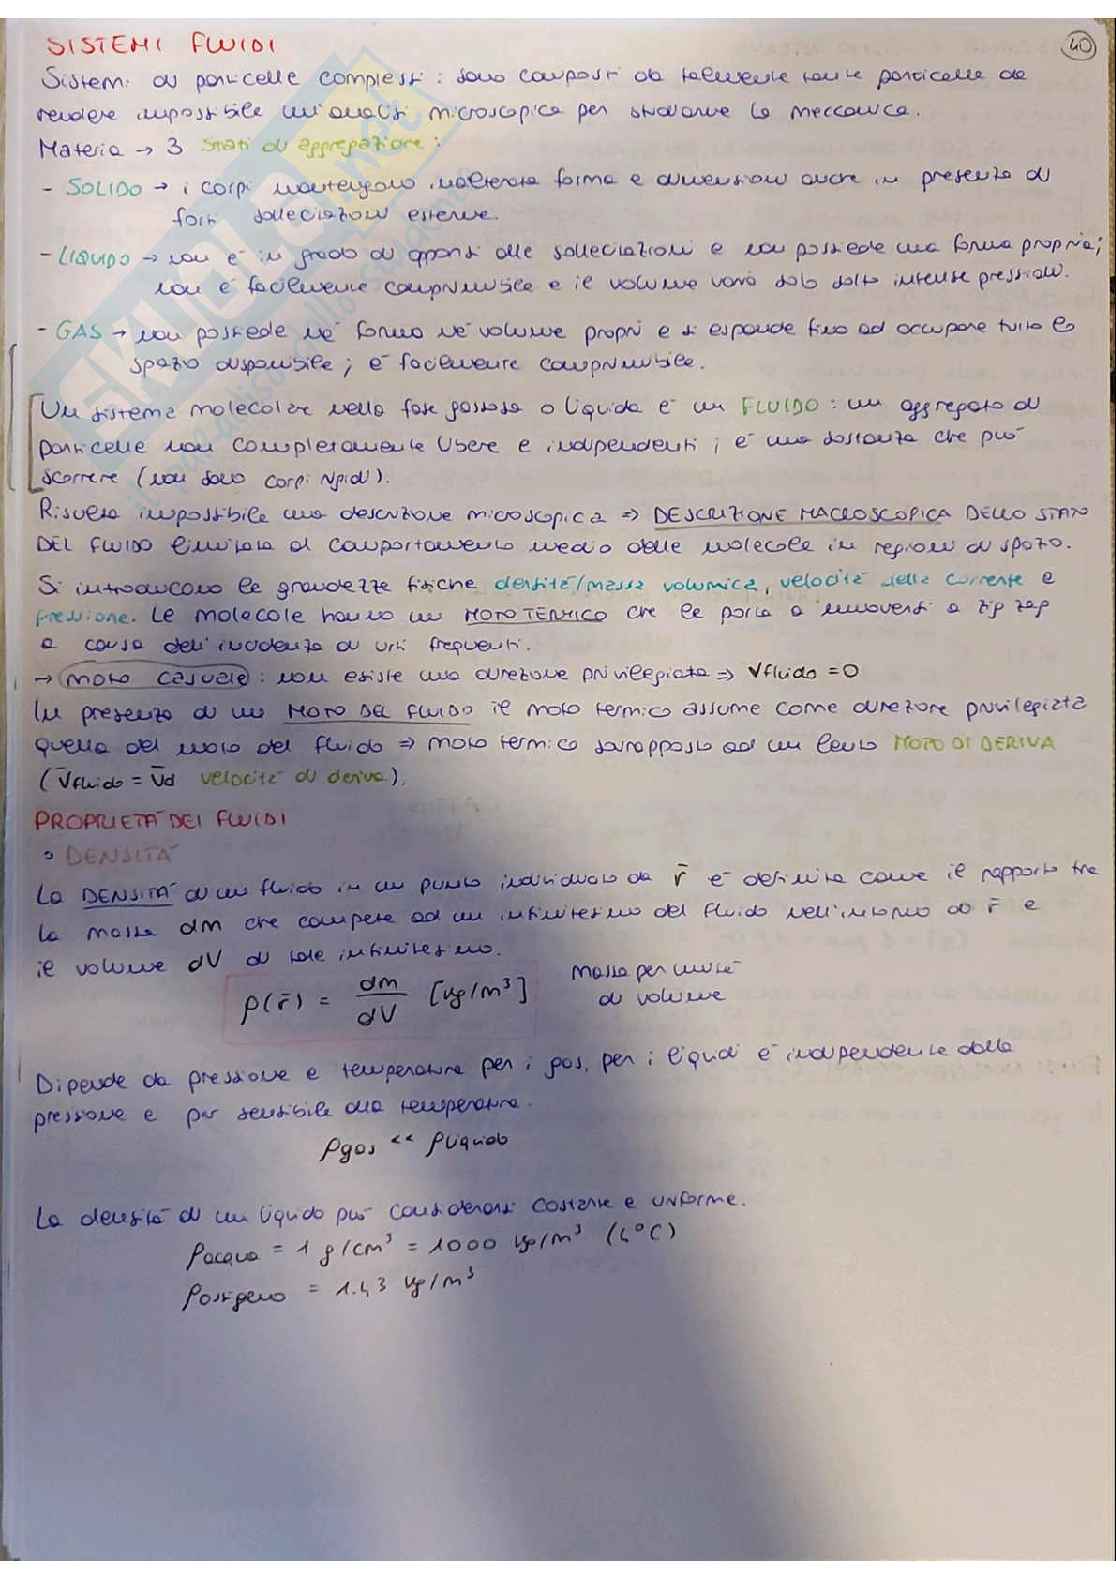 40
SISTEMI FLUIDI
Sistemi di particelle complessi: sono composti da talmente tante particelle da
rendere impossibile un'analisi microscopica per studiarne la meccanica.
Materia → 3 stati di aggregazione:
- SOLIDO → i corpi mantengono inalterata forma e dimensioni anche in presenza di
forti sollecitazioni esterne.
- LIQUIDO → non è in grado di opporsi alle sollecitazioni e non possiede una forma propria;
non è facilmente comprimibile e il volume varia solo sotto intense pressioni.
- GAS → non possiede né forma né volume propri e si espande fino ad occupare tutto lo
spazio disponibile; è facilmente comprimibile.
Un sistema molecolare nella fase gassosa o liquida è un FLUIDO: un aggregato di
particelle non completamente libere e indipendenti; è una sostanza che può
scorrere (non sono corpi rigidi).
Risulta impossibile una descrizione microscopica ⇒ DESCRIZIONE MACROSCOPICA DELLO STATO
DEL FLUIDO limitata al comportamento medio delle molecole in regioni di spazio.
Si introducono le grandezze fisiche densità/massa volumica, velocità della corrente e
pressione. Le molecole hanno un MOTO TERMICO che le porta a muoversi a zig zag
a causa dell'incidenza di urti frequenti.
→ moto casuale: non esiste una direzione privilegiata ⇒ Vfluido = 0
In presenza di un MOTO DEL FLUIDO il moto termico assume come direzione privilegiata
quella del moto del fluido ⇒ moto termico sovrapposto ad un lento MOTO DI DERIVA
(V̄fluido = V̄d velocità di deriva).
PROPRIETÀ DEI FLUIDI
• DENSITÀ
La DENSITÀ di un fluido in un punto individuato da r̄ è definita come il rapporto tra
la massa dm che compete ad un infinitesimo del fluido nell'intorno di r̄ e
il volume dV di tale infinitesimo.
ρ(r̄) = dm/dV [kg/m³] massa per unità
di volume
Dipende da pressione e temperatura per i gas, per i liquidi è indipendente dalla
pressione e più sensibile alla temperatura.
ρgas << ρliquido
La densità di un liquido può considerarsi costante e uniforme.
ρacqua = 1 g/cm³ = 1000 kg/m³ (4°C)
ρossigeno = 1.43 kg/m³